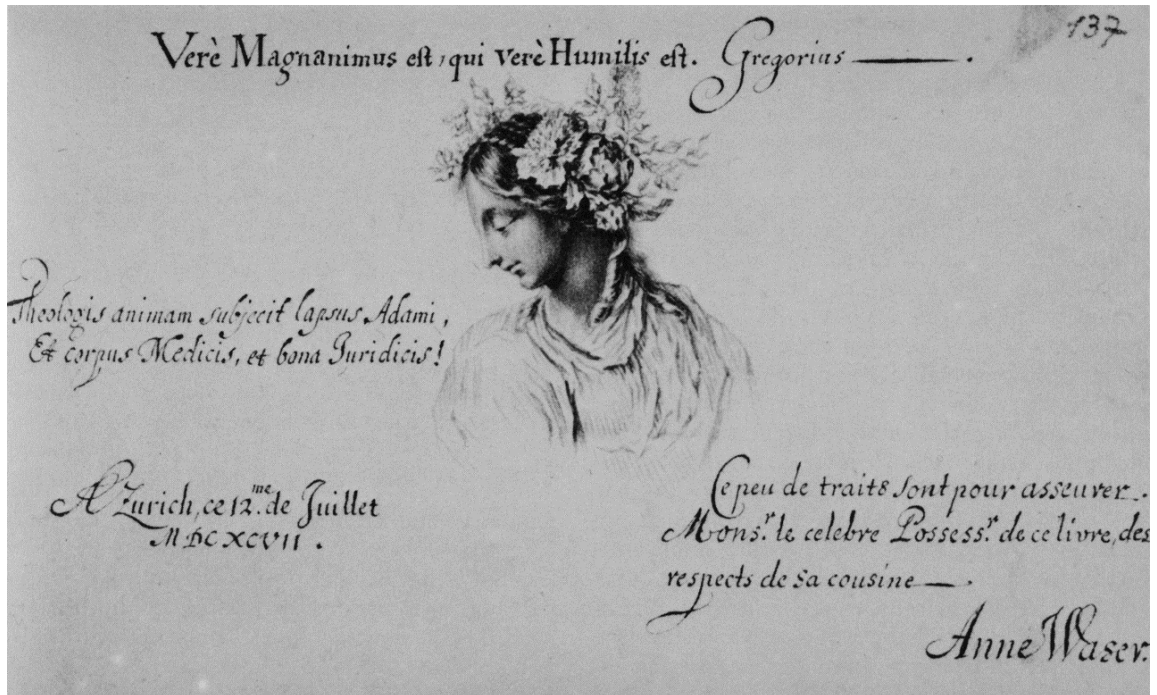 137
Verè Magnanimus est, qui verè Humilis est. Gregorius ———.
Theologis animam subjecit lapsus Adami,
Et corpus Medicis, et bona Juridicis!
A Zurich, ce 12.me de Juillet
MDCXCVII.
Ce peu de traits sont pour asseurer
Mons.r le celebre Possess.r de ce livre, des
respects de sa cousine —.
Anne Waser.